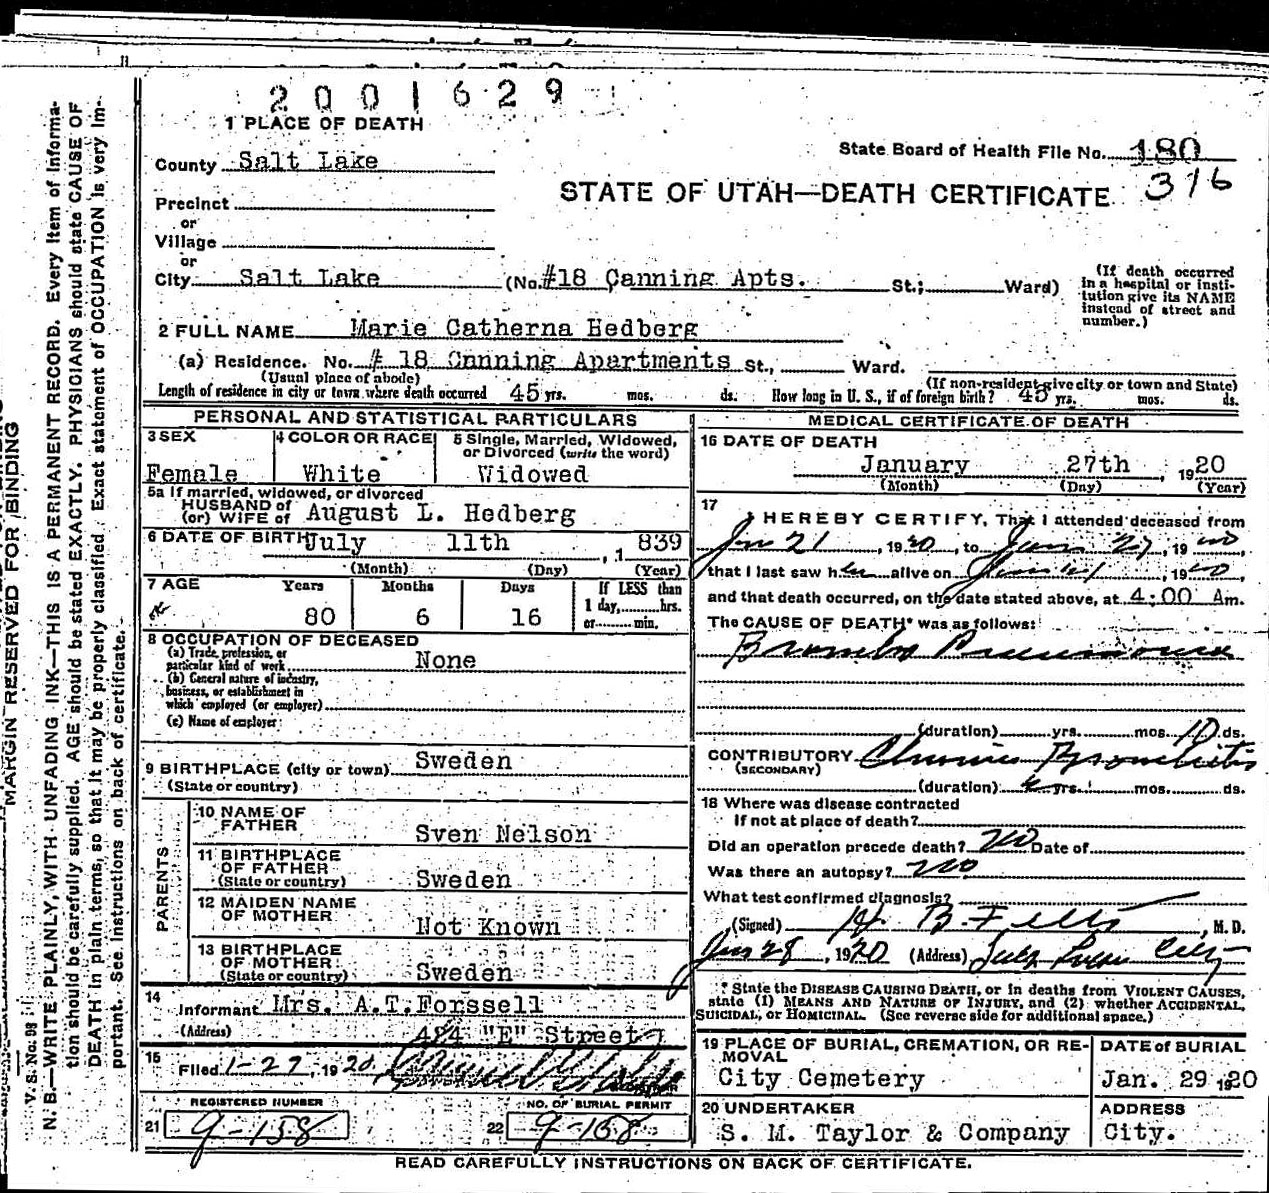 2001629
1 PLACE OF DEATH
County Salt Lake
State Board of Health File No. 180
316
STATE OF UTAH—DEATH CERTIFICATE
Precinct
or
Village
or
City Salt Lake (No. #18 Canning Apts. St.; Ward)
(If death occurred in a hospital or insti-
tution give its NAME
instead of street and
number.)
2 FULL NAME Marie Catherna Hedberg
(a) Residence. No. # 18 Cnnning Apartments St., Ward.
(Usual place of abode) (If non-resident give city or town and State)
Length of residence in city or town where death occurred 45 yrs. mos. ds. How long in U. S., if of foreign birth? 45 yrs. mos. ds.
PERSONAL AND STATISTICAL PARTICULARS
3 SEX
Female
4 COLOR OR RACE
White
5 Single, Married, Widowed,
or Divorced (write the word)
Widowed
5a If married, widowed, or divorced
HUSBAND of
(or) WIFE of August L. Hedberg
6 DATE OF BIRTH July 11th , 1 839
(Month) (Day) (Year)
7 AGE Years Months Days If LESS than
1 day, hrs.
or min.
80 6 16
8 OCCUPATION OF DECEASED
(a) Trade, profession, or
particular kind of work None
(b) General nature of industry,
business, or establishment in
which employed (or employer)
(c) Name of employer
9 BIRTHPLACE (city or town) Sweden
(State or country)
PARENTS
10 NAME OF
FATHER Sven Nelson
11 BIRTHPLACE
OF FATHER
(State or country) Sweden
12 MAIDEN NAME
OF MOTHER Not Known
13 BIRTHPLACE
OF MOTHER
(State or country) Sweden
14
Informant Mrs. A.T.Forssell
(Address) 484 "E" Street
15
Filed 1-27, 1920
REGISTERED NUMBER
21 9-158
NO. OF BURIAL PERMIT
22 9-158
MEDICAL CERTIFICATE OF DEATH
16 DATE OF DEATH
January 27th , 1920
(Month) (Day) (Year)
17
I HEREBY CERTIFY, That I attended deceased from
Jan 21, 1920, to Jan 27, 1920,
that I last saw her alive on 1920,
and that death occurred, on the date stated above, at 4:00 Am.
The CAUSE OF DEATH* was as follows:
Broncho Pneumonia
(duration) yrs. mos. 10 ds.
CONTRIBUTORY Chronic Bronchitis
(SECONDARY)
(duration) yrs. mos. ds.
18 Where was disease contracted
If not at place of death?
Did an operation precede death? no Date of
Was there an autopsy? no
What test confirmed diagnosis?
(Signed) , M. D.
Jan 28, 1920 (Address) Salt Lake City
* State the DISEASE CAUSING DEATH, or in deaths from VIOLENT CAUSES,
state (1) MEANS AND NATURE OF INJURY, and (2) whether ACCIDENTAL,
SUICIDAL, or HOMICIDAL. (See reverse side for additional space.)
19 PLACE OF BURIAL, CREMATION, OR RE-
MOVAL
City Cemetery
DATE of BURIAL
Jan. 29 1920
20 UNDERTAKER
S. M. Taylor & Company
ADDRESS
City.
READ CAREFULLY INSTRUCTIONS ON BACK OF CERTIFICATE.
MARGIN RESERVED FOR BINDING
V. S. No. 98
N. B.—WRITE PLAINLY, WITH UNFADING INK—THIS IS A PERMANENT RECORD. Every item of informa-
tion should be carefully supplied. AGE should be stated EXACTLY. PHYSICIANS should state CAUSE OF
DEATH in plain terms, so that it may be properly classified. Exact statement of OCCUPATION is very im-
portant. See instructions on back of certificate.